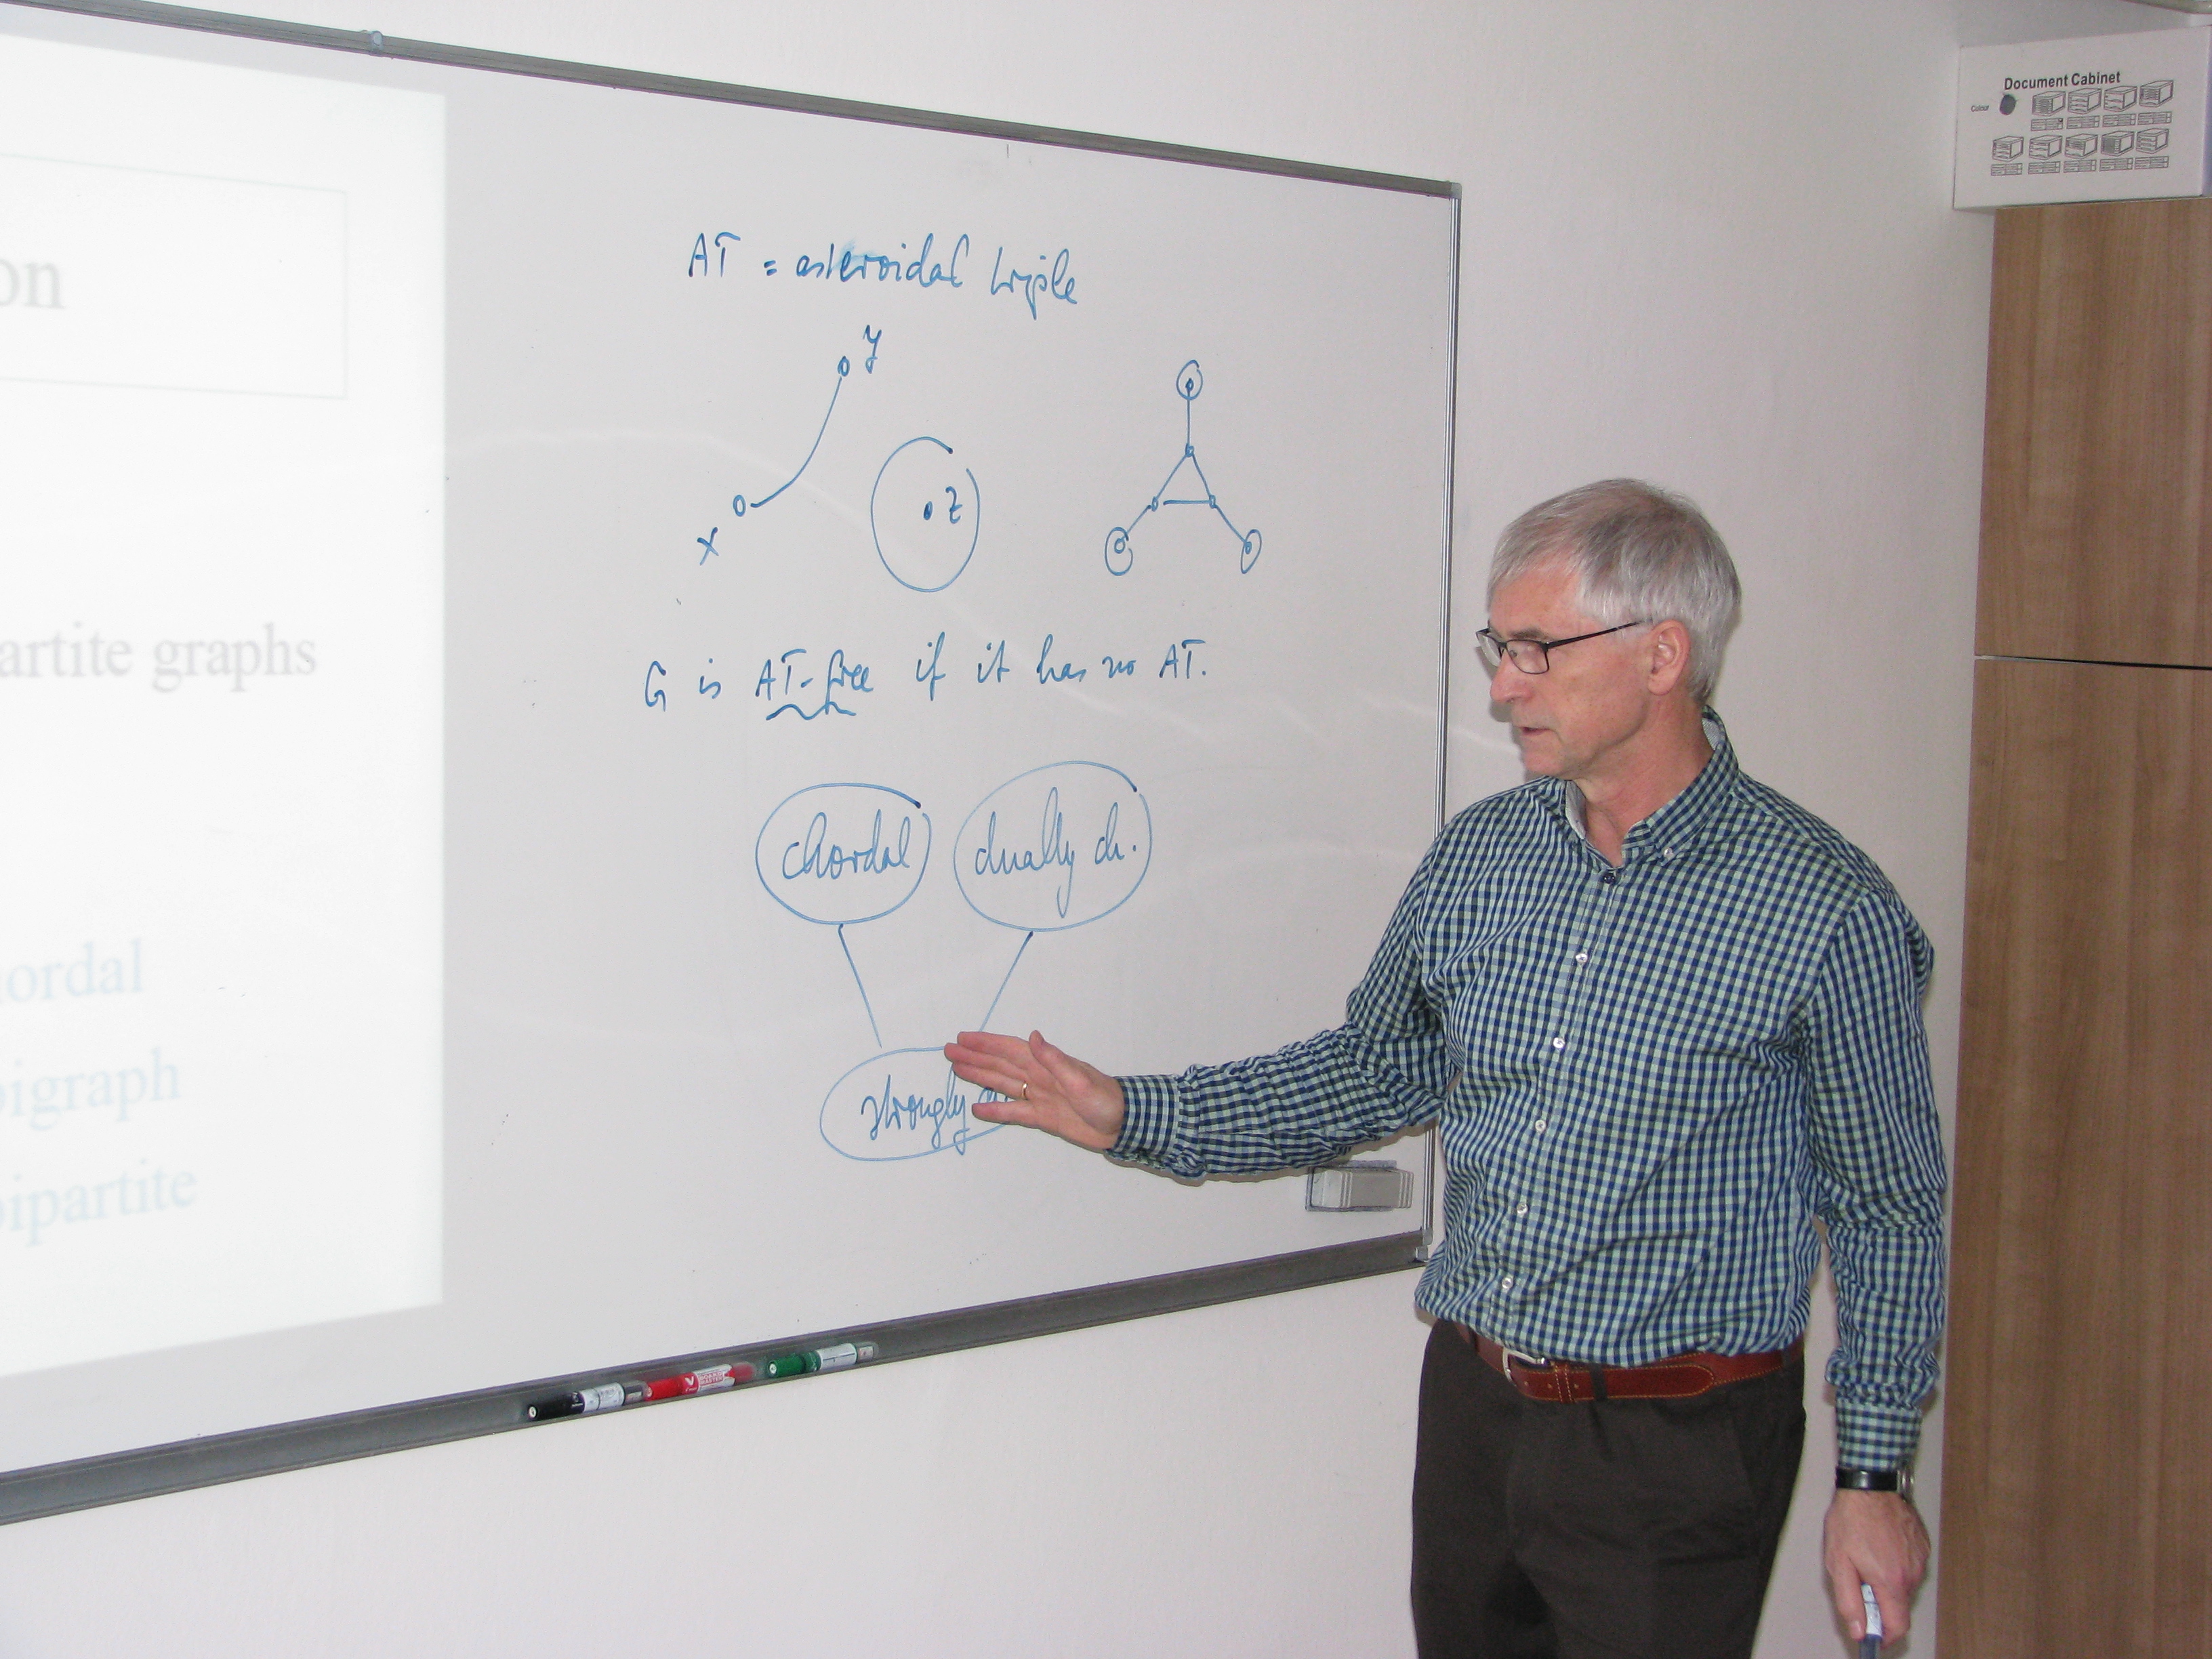 on
artite graphs
ordal
bigraph
bipartite
AT = asteroidal triple
y
z
x
G is AT-free if it has no AT.
chordal
dually ch.
strongly
Document Cabinet
Colour